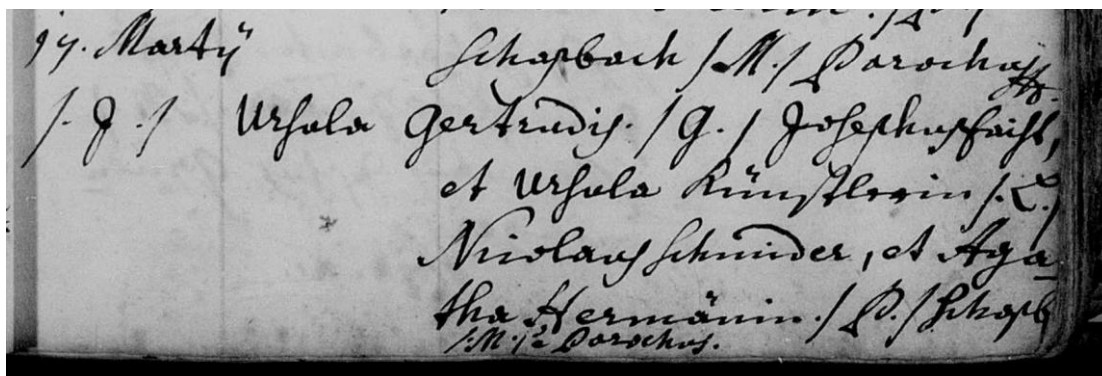 17. Martÿ
Schapbach /M./ Parochus
/. J ./ Ursula Gertrudis. /G./ Josephus
et Ursula Künstlerin /. L./
Nicolaus Schmider, et Aga
tha Hermänin. / P. / Schapb
/. M. / à Parochus.